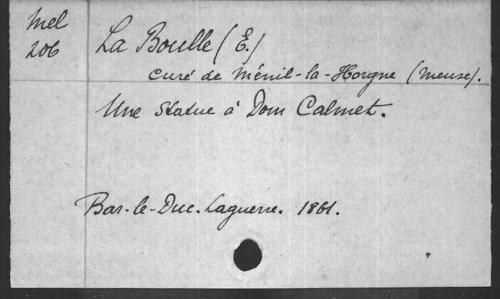 Mel
206
La Boulle (E.)
curé de Ménil-la-Horgne (Meuse).
Une statue à Dom Calmet.
Bar-le-Duc. Laguerre. 1861.